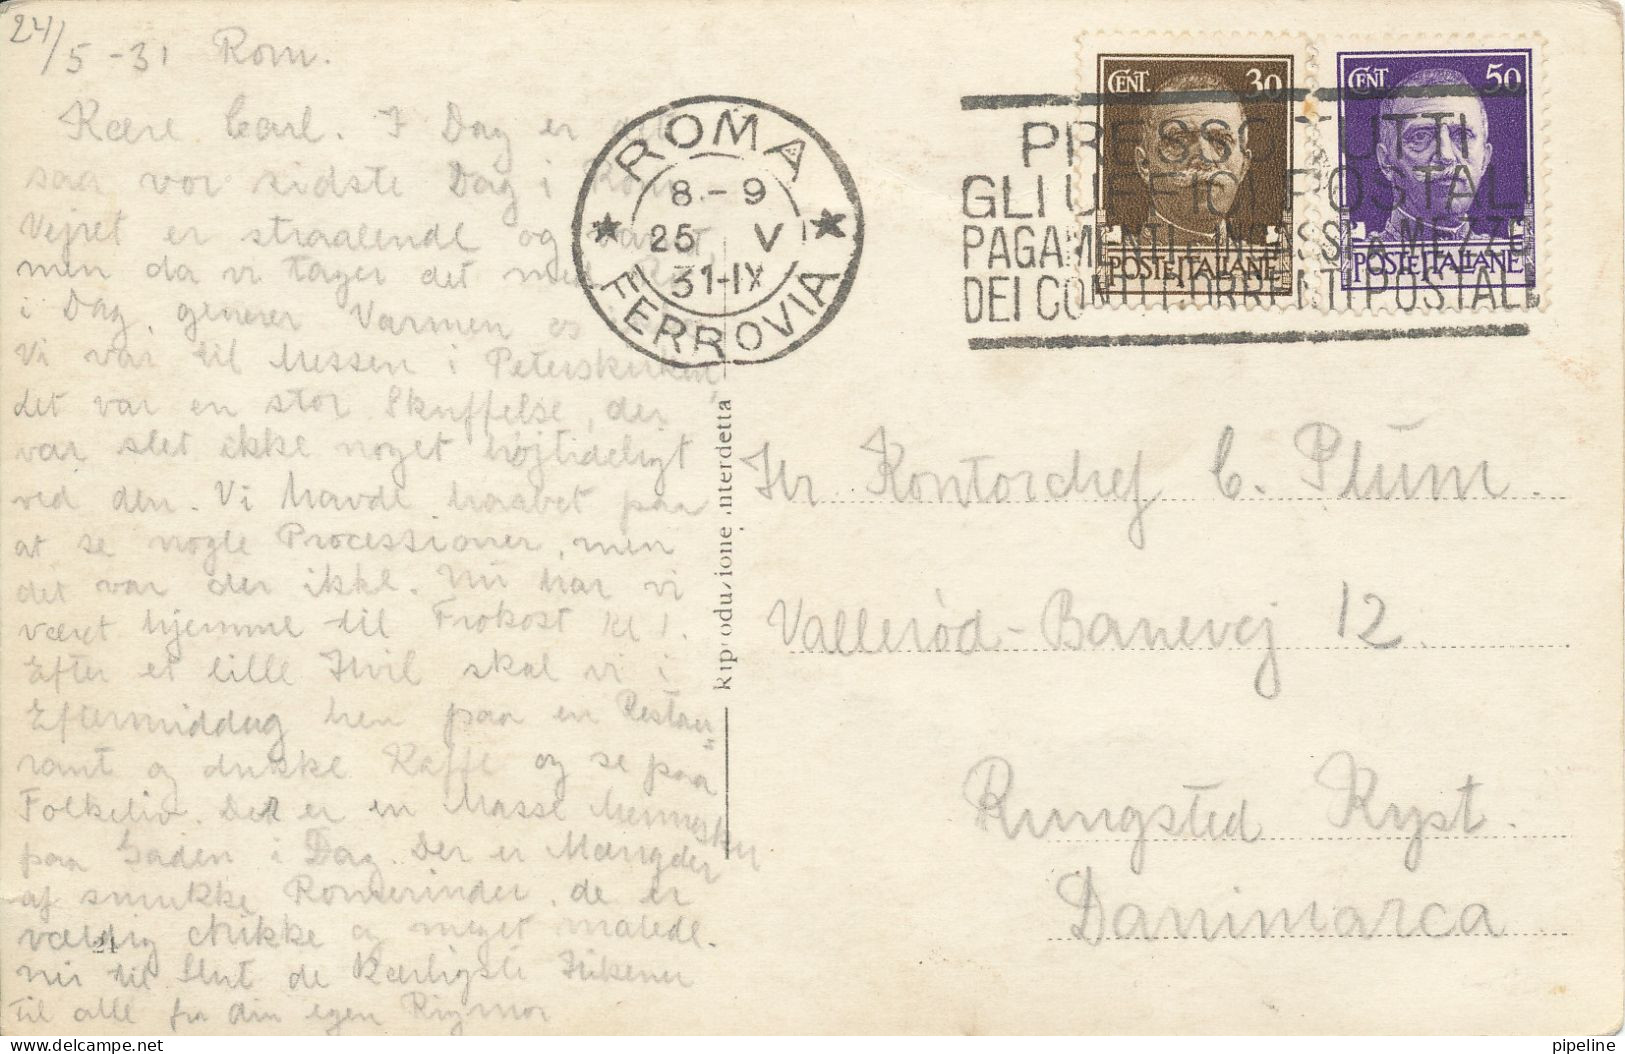 24/5-31 Rom.
Kære Carl. I Dag er det
saa vor sidste Dag i Rom
Vejret er straalende og varmt
men da vi tager det med Ro
i Dag, generer Varmen os
Vi var til Messen i Peterskirken,
det var en stor Skuffelse, der
var slet ikke noget højtideligt
ved den. Vi havde haabet paa
at se nogle Processioner, men
det var der ikke. Nu har vi
været hjemme til Frokost Kl 1.
Efter et lille Hvil skal vi i
Eftermiddag hen paa en Restau=
rant og drikke Kaffe og se paa
Folkeliv. Der er en Masse Mennesker
paa Gaden i Dag. Der er Mængder
af smukke Romerinder, de er
vældig chikke og meget malede.
Nu til Slut de kærligste Hilsener
til alle fra din egen Rigmor
21
ROMA
8.-9
25 V
31-IX
FERROVIA
Riproduzione interdetta
CENT. 30
POSTE ITALIANE
CENT 50
POSTE ITALIANE
PRESSO TUTTI
GLI UFFICI POSTALI
PAGAMENTI E INCASSI A MEZZO
DEI CONTI CORRENTI POSTALI
Hr Kontorchef C. Plum.
Vallerød-Banevej 12.
Rungsted Kyst.
Danimarca
pipeline